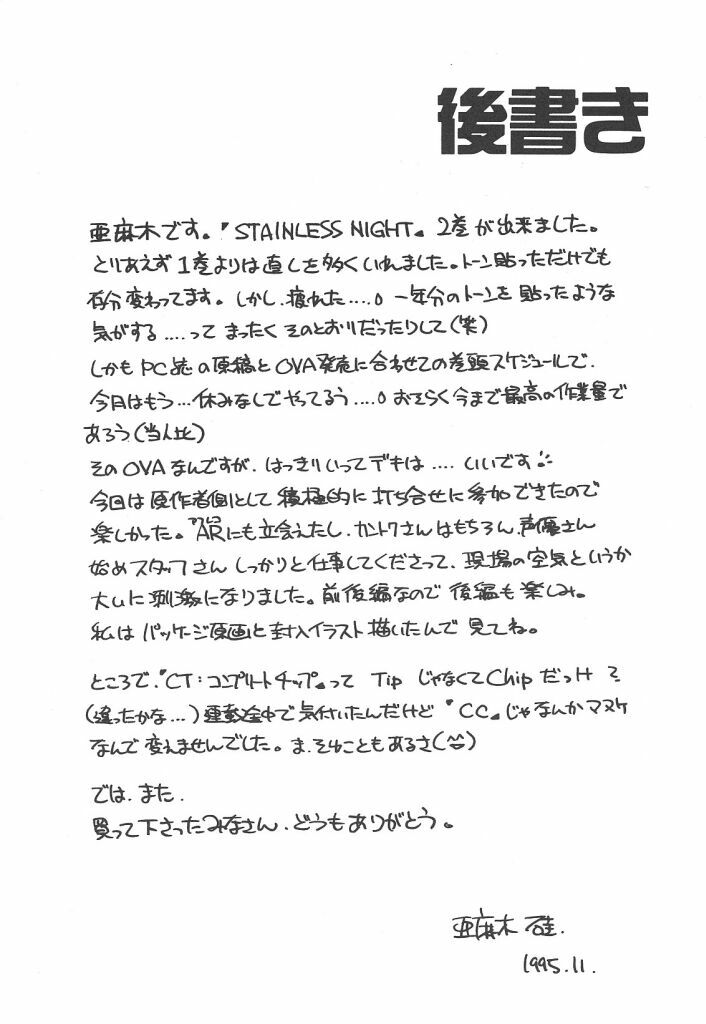 後書き
亜麻木です。『STAINLESS NIGHT』2巻が出来ました。
とりあえず1巻よりは直しを多くいれました。トーン貼っただけでも
百分変わってます。しかし、疲れた....。一年分のトーンを貼ったような
気がする....って まったくそのとおりだったりして(笑)
しかもPC誌の原稿とOVA発売に合わせての巻頭スケジュールで、
今月はもう...休みなしでやってるう....。おそらく今まで最高の作業量で
あろう(当人比)
そのOVAなんですが、はっきりいってデキは....いいです
今回は原作者側として積極的に打ち合せに参加できたので
楽しかった。ARにも立会えたし、カントクさんはもちろん、声優さん
始めスタッフさんしっかりと仕事してくださって、現場の空気というか
大いに刺激になりました。前後編なので後編も楽しみ。
私はパッケージ原画と封入イラスト描いたんで見てね。
ところで、『CT:コンプリートチップ』って TipじゃなくてChipだっけ?
(違ったかな...)運転途中で気付いたんだけど『CC』じゃなんかマヌケ
なんで変えませんでした。ま、そんなこともあるさ(^^)
では、また、
買って下さったみなさん、どうもありがとう。
亜麻木 硅.
1995.11.